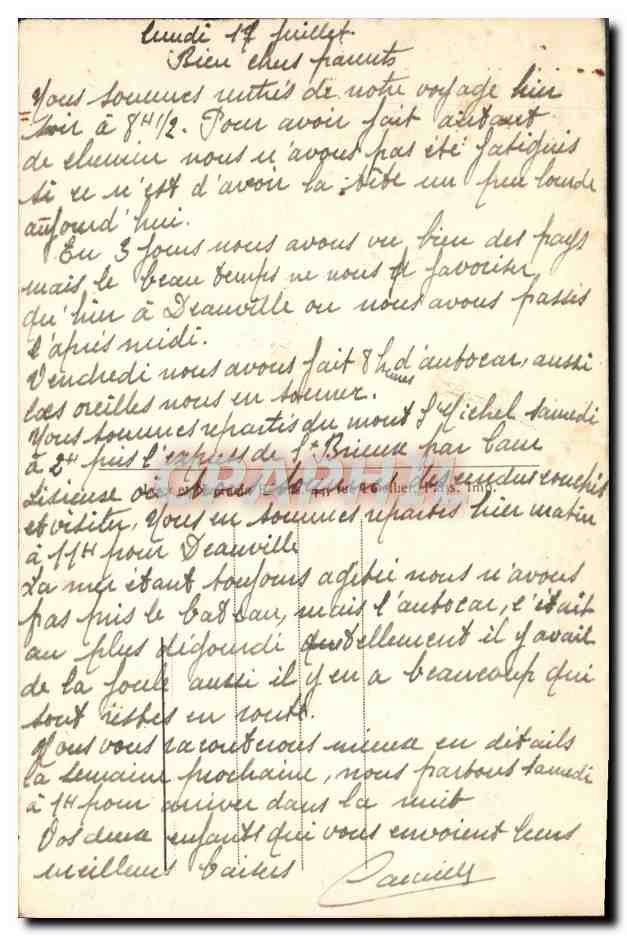 lundi 17 juillet.
Bien chers parents
Nous sommes rentrés de notre voyage hier
soir à 8H1/2. Pour avoir fait autant
de chemin nous n'avons pas été fatigués
si ce n'est d'avoir la tête un peu lourde
aujourd'hui.
En 3 jours nous avons vu bien des pays
mais le beau temps ne nous favorisa
qu'hier à Deauville ou nous avons passés
l'après midi.
Vendredi nous avons fait 8 heures d'autocar, aussi
les oreilles nous en sonner.
Nous sommes repartis du mont St Michel samedi
à 2H pris l'express de St Brieux par Caen
Lisieux ou nous sommes descendus couchés
et visiter, Nous en sommes repartis hier matin
à 11H pour Deauville
La mer étant toujours agitée nous n'avons
pas pris le bateau, mais l'autocar, c'était
au plus dégourdi tellement il y avait
de la foule aussi il y en a beaucoup qui
sont restés en route.
Nous vous raconterons mieux en détails
la semaine prochaine, nous partons samedi
à 1H pour arriver dans la nuit
Vos deux enfants qui vous envoient leurs
meilleurs baisers